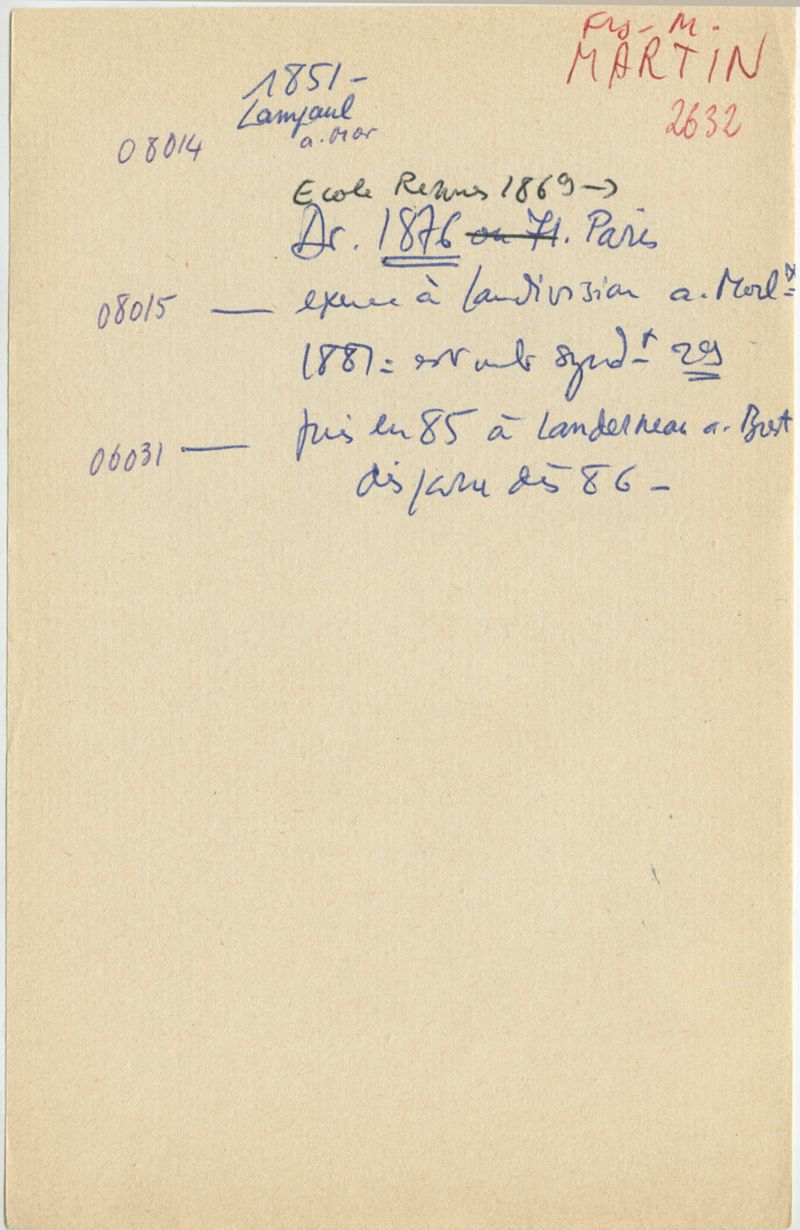 Frs - M.
MARTIN
2632
1851 -
Lampaul
a. Mor
08014
Ecole Rennes 1869 →
Dr. 1876 ou 71. Paris
08015 — exerce à Landivisiau a. Morl=x
1881 = est mb synd-t 29
06031 — puis en 85 à Landerneau a. Brest
disparu dès 86 -